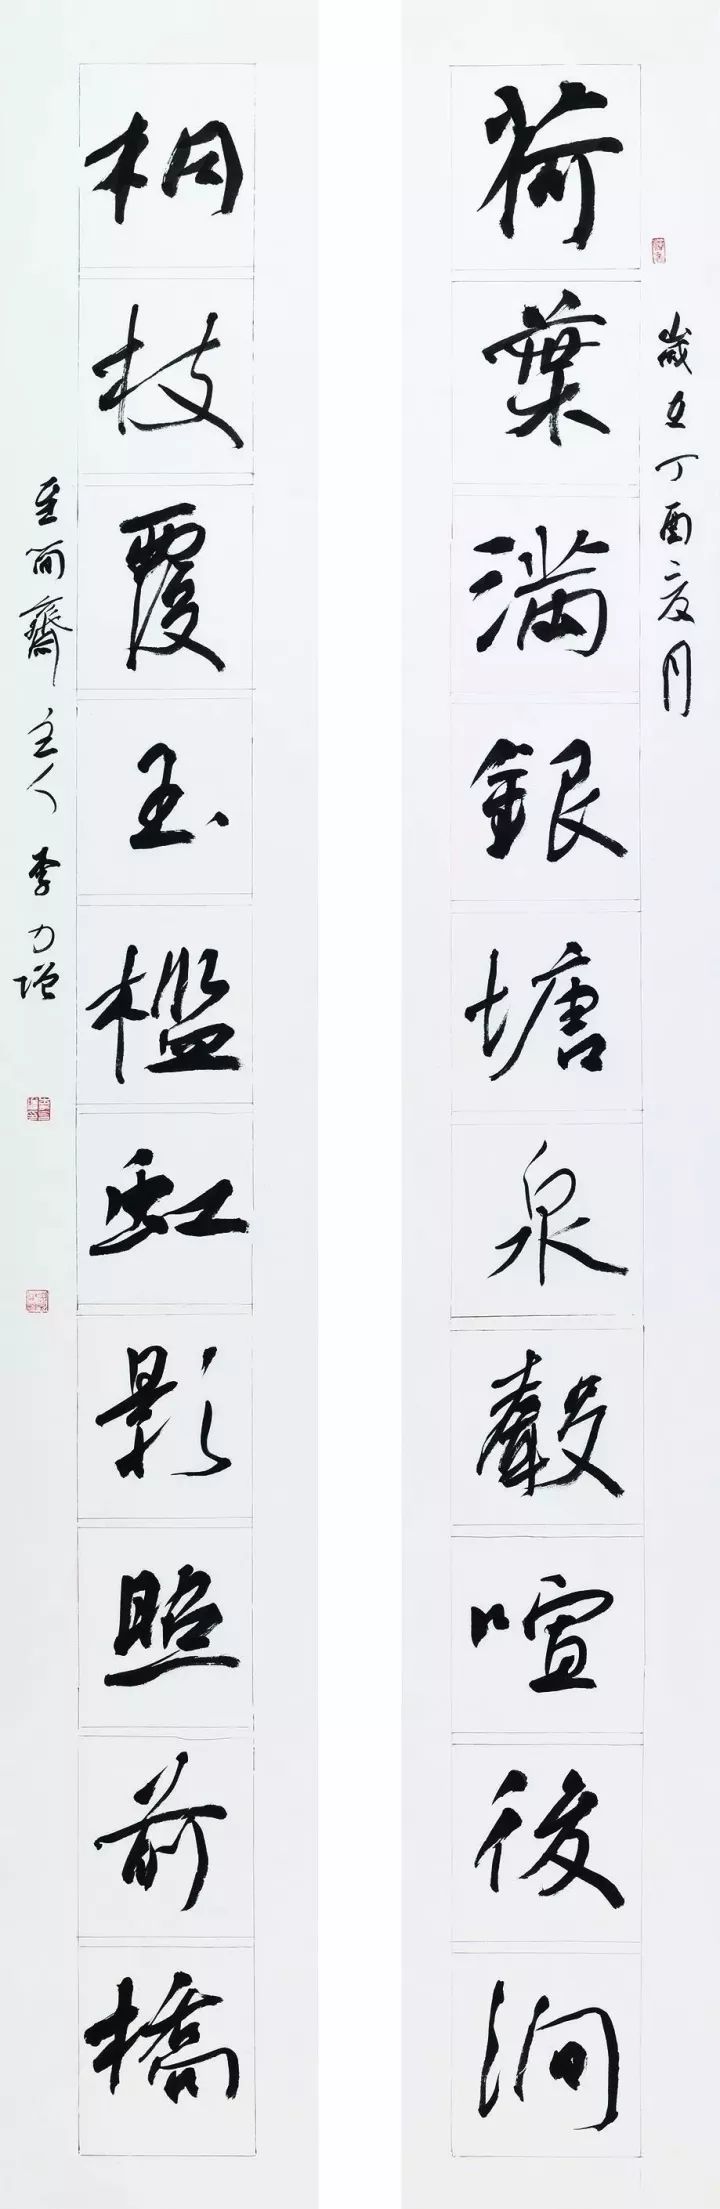 歲在丁酉夏月
荷葉滿銀塘泉聲喧後澗
桐枝覆玉檻虹影照前橋
至简齋主人李力增